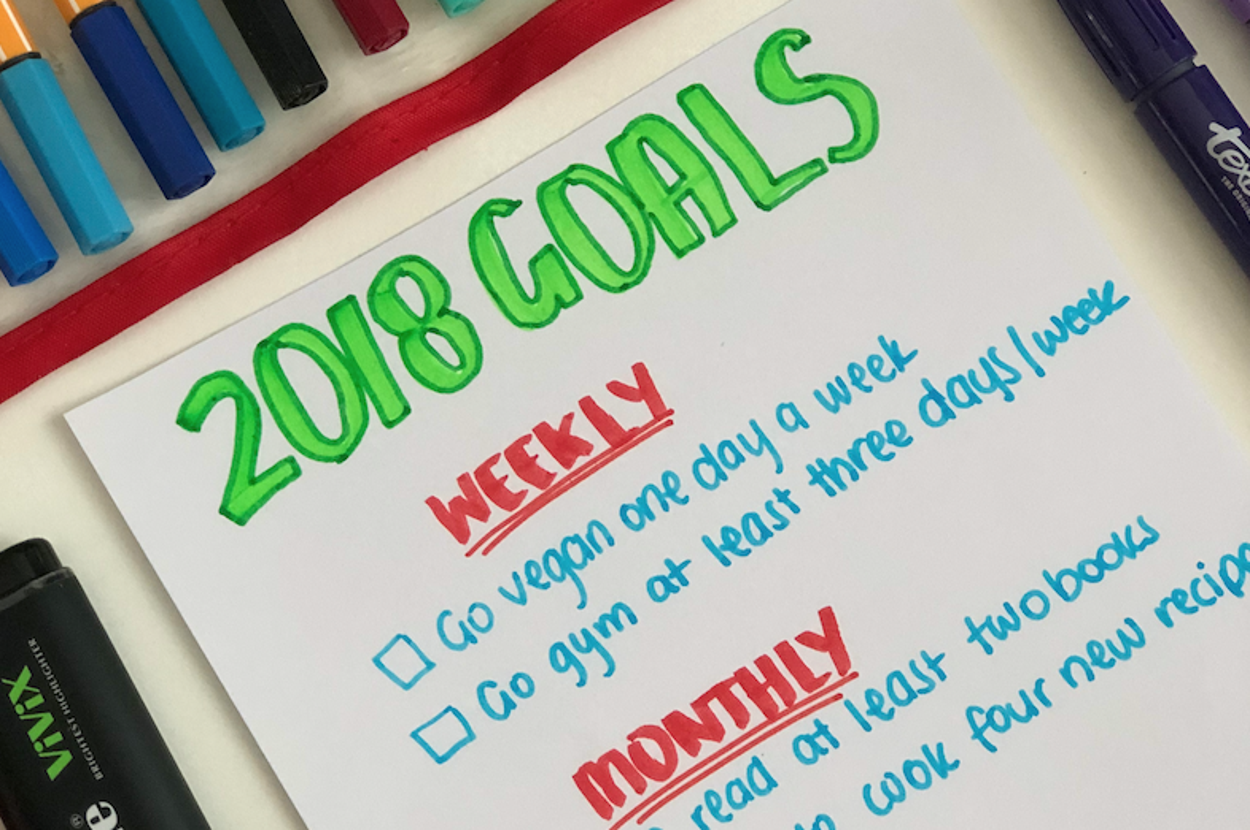 2018 GOALS
WEEKLY
Go vegan one day a week
Go gym at least three days/week
MONTHLY
read at least two books
cook four new
ViViX
BRIGHTEST HIGHLIGHTER